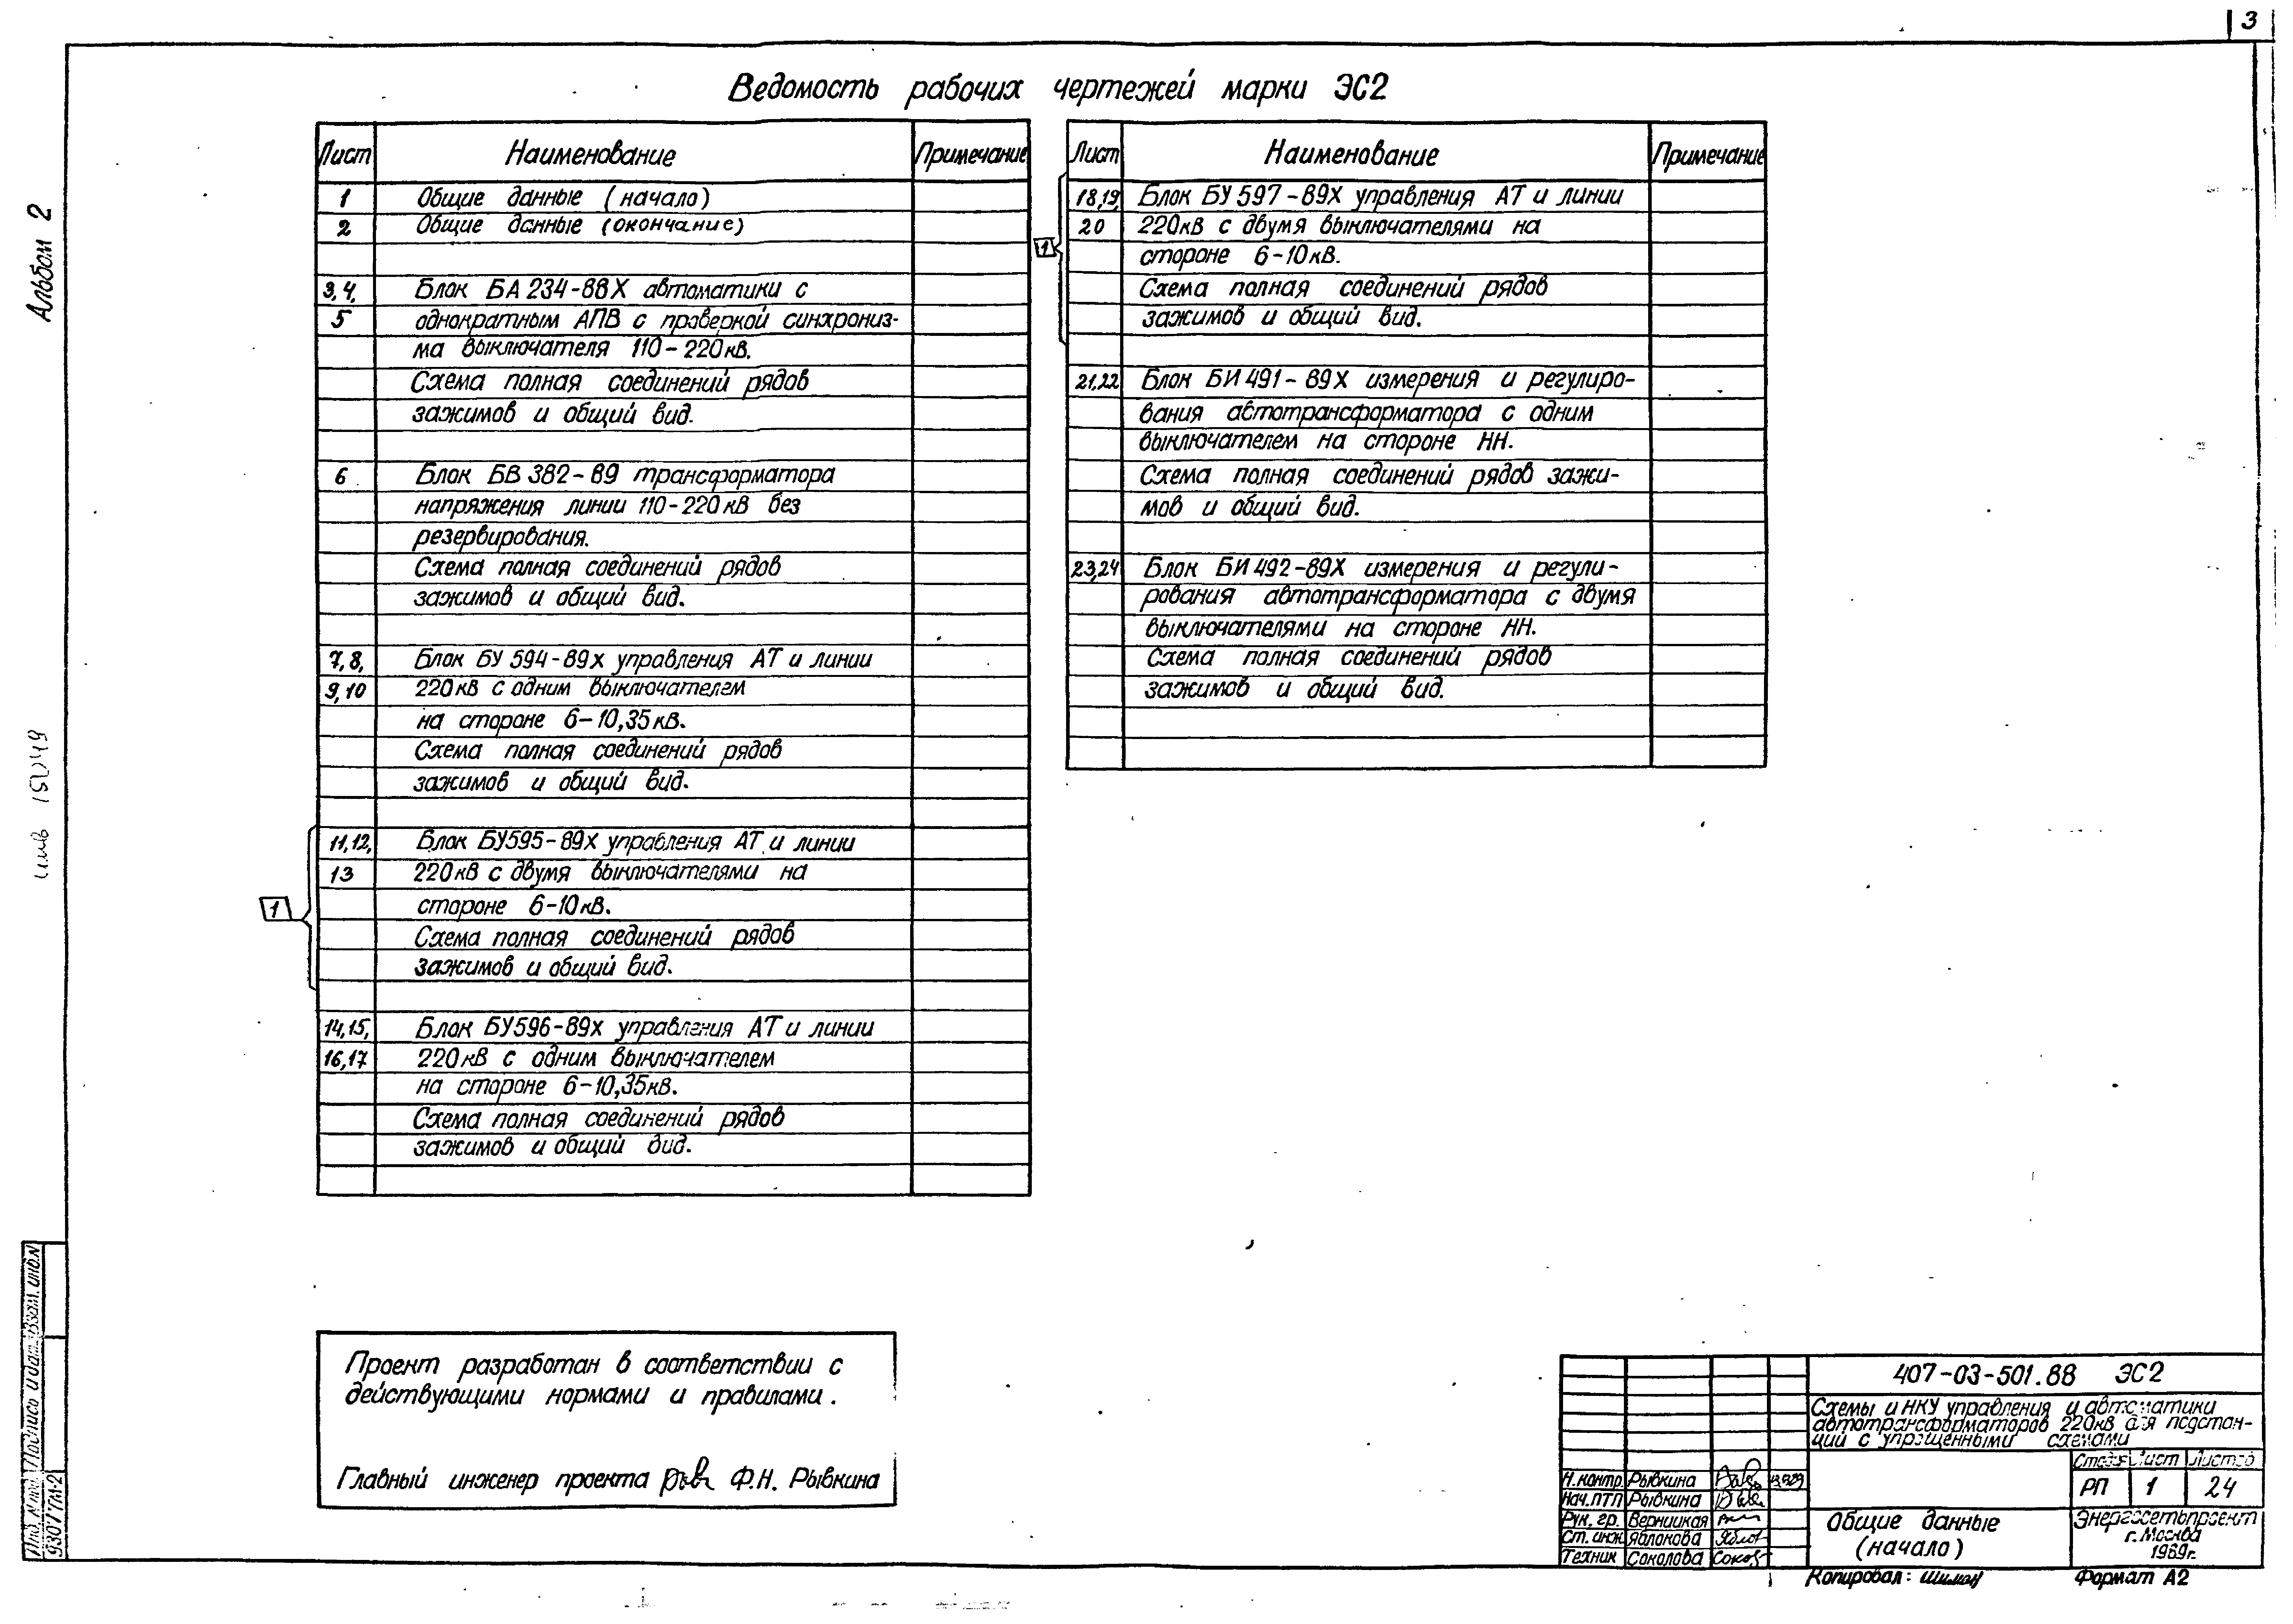 3
Альбом 2
Ведомость рабочих чертежей марки ЭС2
Лист Наименование Примечание
1 Общие данные (начало)
2 Общие данные (окончание)
3,4, Блок БА 234-88Х автоматики с
5 однократным АПВ с проверкой синхрониз-
ма выключателя 110-220кв.
Схема полная соединений рядов
зажимов и общий вид.
6 Блок БВ 382-89 трансформатора
напряжения линии 110-220кВ без
резервирования.
Схема полная соединений рядов
зажимов и общий вид.
7,8, Блок БУ 594-89х управления АТ и линии
9,10 220кВ с одним выключателем
на стороне 6-10,35кВ.
Схема полная соединений рядов
зажимов и общий вид.
11,12, Блок БУ595-89х управления АТ и линии
13 220кВ с двумя выключателями на
1
стороне 6-10кВ.
Схема полная соединений рядов
зажимов и общий вид.
14,15, Блок БУ596-89х управления АТ и линии
16,17 220кВ с одним выключателем
на стороне 6-10,35кВ.
Схема полная соединений рядов
зажимов и общий вид.
Лист Наименование Примечание
18,19, Блок БУ 597-89Х управления АТ и линии
20 220кВ с двумя выключателями на
1
стороне 6-10кВ.
Схема полная соединений рядов
зажимов и общий вид.
21,22 Блок БИ 491-89Х измерения и регулиро-
вания автотрансформатора с одним
выключателем на стороне НН.
Схема полная соединений рядов зажи-
мов и общий вид.
23,24 Блок БИ 492-89Х измерения и регули-
рования автотрансформатора с двумя
выключателями на стороне НН.
Схема полная соединений рядов
зажимов и общий вид.
Проект разработан в соответствии с
действующими нормами и правилами.
Главный инженер проекта Ф.Н. Рывкина
407-03-501.88 ЭС2
Схемы и НКУ управления и автоматики
автотрансформаторов 220кВ для подстан-
ций с упрощенными схемами
Стадия Лист Листов
РП 1 24
Н.контр. Рывкина
Нач.ПТП Рывкина
Рук. гр. Верницкая
Ст. инж. Яблокова
Техник Соколова
Общие данные
(начало)
Энергосетьпроект
г. Москва
1989г.
Копировал: Формат А2
Инв. № подл. Подпись и дата Взам. инв. №
9307ТМ-2